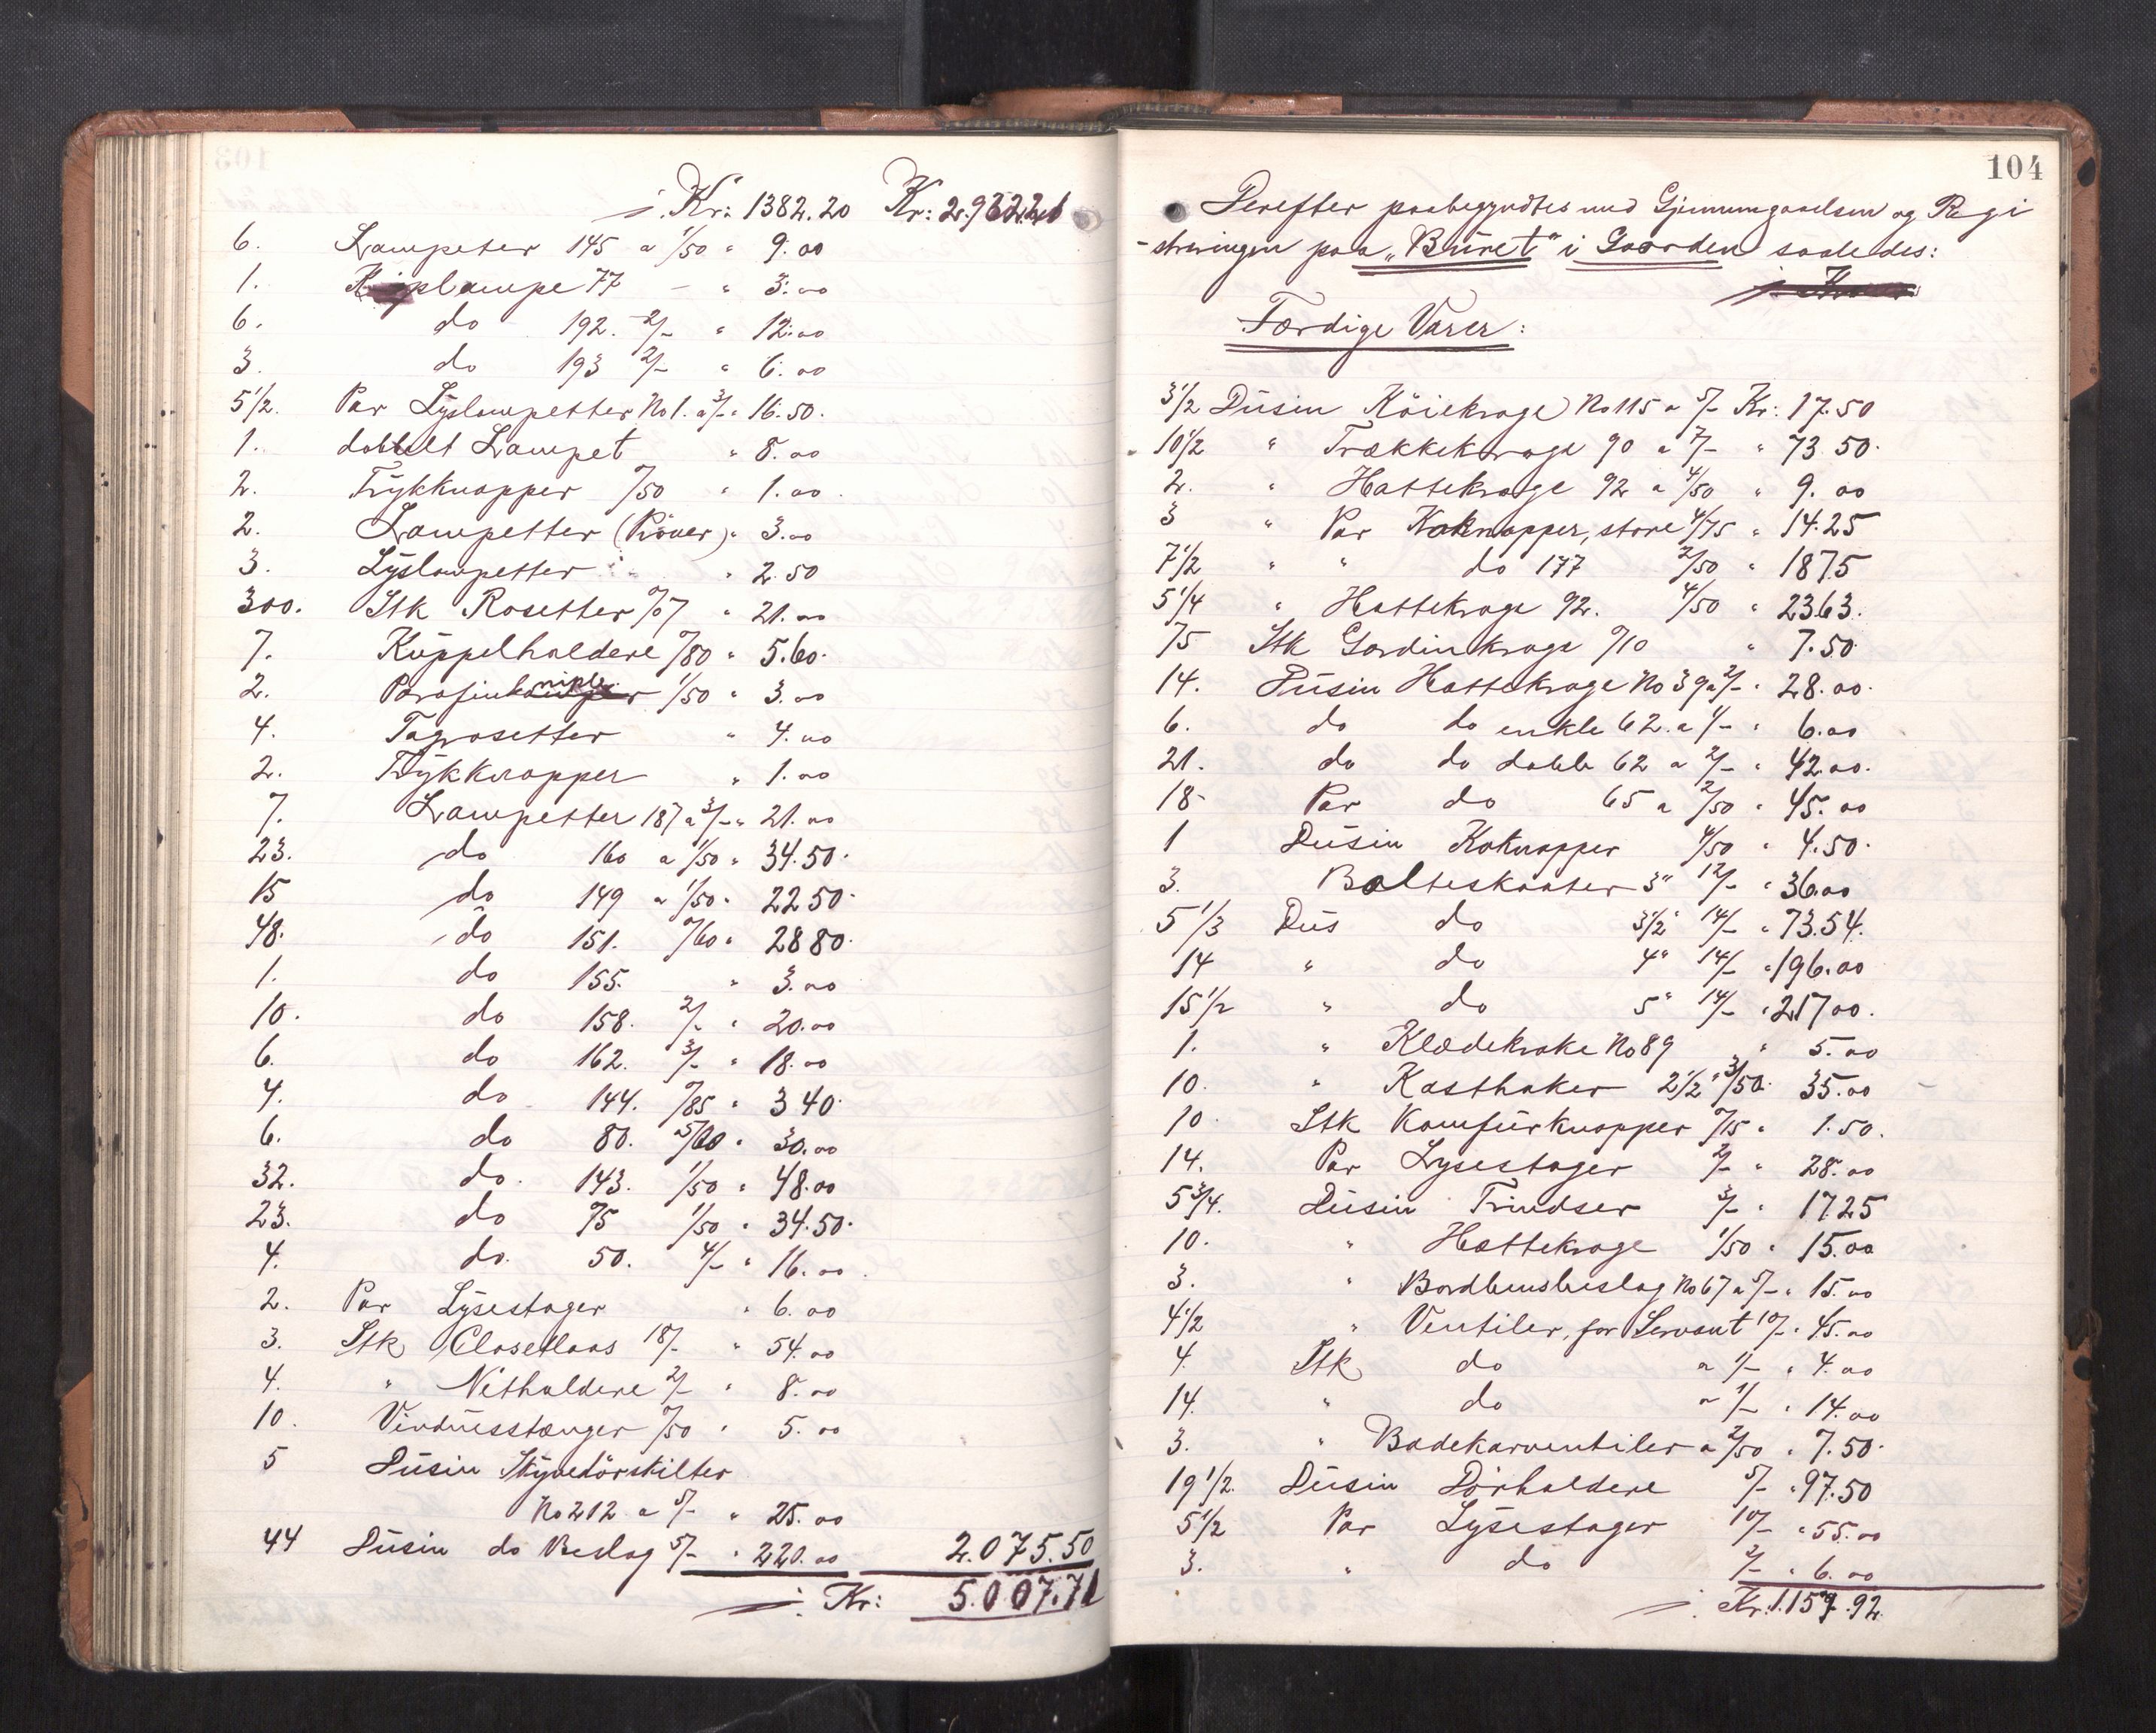 /. Kr: 1382.20 Kr: 2.932.21
6. Lampeter 145 a 1/50 " 9.00
1. lampe 77 - " 3.00
6. do 192. 2/- " 12.00
3. do 193 2/- " 6.00
5 1/2. Par Lyslampetter No 1. a 3/- " 16.50.
1. dobbelt Lampet " 8.00
2. Trykknapper /50 " 1.00.
2. Lampetter (Prøver) " 3.00
3. Lyslampetter " 2.50
300. Stk Rosetter 0/07 " 21.00
7. Kuppelholdere 0/80 " 5.60.
2. Parafin niple 1/50 " 3.00
4. Tagrosetter " 4.00
2. Trykknapper " 1.00
7. Lampetter 187 a 3/- " 21.00
23. do 160 a 1/50 " 34.50.
15 do 149 a 1/50 " 22 50.
48. do 151. 0/60 " 28 80.
1. do 155. " 3.00
10. do 158. 2/- " 20.00
6. do 162. 3/- " 18.00
4. do 144. 0/85 " 3 40.
6. do 80. 5/00 " 30.00
32. do. 143. 1/50 " 48.00
23. do 75 1/50 " 34.50.
4. do. 50. 4/- " 16.00.
2. Par Lysestager " 6.00
3. Stk Closetlaas 18/- " 54.00
4. " Netholdere 2/- " 8.00
10. Vinduesstænger 0/50 " 5.00
5 Dusin Skyvedörskilter
No 212 a 5/- " 25.00
44 Dusin do Beslag 5/- " 220.00 2.075.50
/. Kr: 5.007.71
104
Derefter paabegyndtes med Gjennemgaaelsen og Regi
-streringen paa "Buret" i Gaarden saaledes:
Færdige Varer:
3 1/2 Dusin Köiekroge No 115 a 5/- Kr: 17.50
10 1/2 " Trækkekroge 90 a 7/- " 73 50.
2. " Hattekroge 92 a 4/50 " 9.00
3 " Par Koknapper, store 4/75 " 14.25
7 1/2 " " do 177 2/50 " 18 75
5 1/4 " Hattekroge 92. 4/50 " 23 63.
75 Stk Gardinkroge 0/10 " 7.50
14. Dusin Hattekroge No 39 a 2/- " 28.00.
6. do do enkle 62. a 1/- " 6.00
21. do do dobb 62 a 2/- " 42.00.
18- Par do 65 a 2/50 " 45.00
1 Dusin Koknapper 4/50 " 4.50.
3. Balteskaater 3" 12/- " 36.00
5 1/3 Dus do 3 1/2" 14/- " 73.54.
14 " do 4" 14/- " 196.00
15 1/2 " do 5" 14/- " 217 00.
1. " Klædekroke No 89 " 5.00
10. " Kasthaker 2 1/2" 3/50. 35.00
10. Stk Komfürknapper 0/15 " 1.50.
14. Par Lysestager 2/- " 28.00
5 3/4. Dusin Trindser 3/- " 17 25
10. " Hattekroge 1/50 " 15.00
3. " Bordbensbeslag No 67 a 5/- " 15.00
4 1/2 " Ventiler, for Servant 10/- " 45.00
4. Stk do a 1/- " 4.00
14. " do a 1/- " 14.00
3. " Badekarventiler a 2/50 " 7.50.
19 1/2. Dusin Dörholdere 5/- " 97.50
5 1/2 Par Lysestager 10/- " 55.00
3. " do 2/- " 6.00
/. Kr. 1.157.92